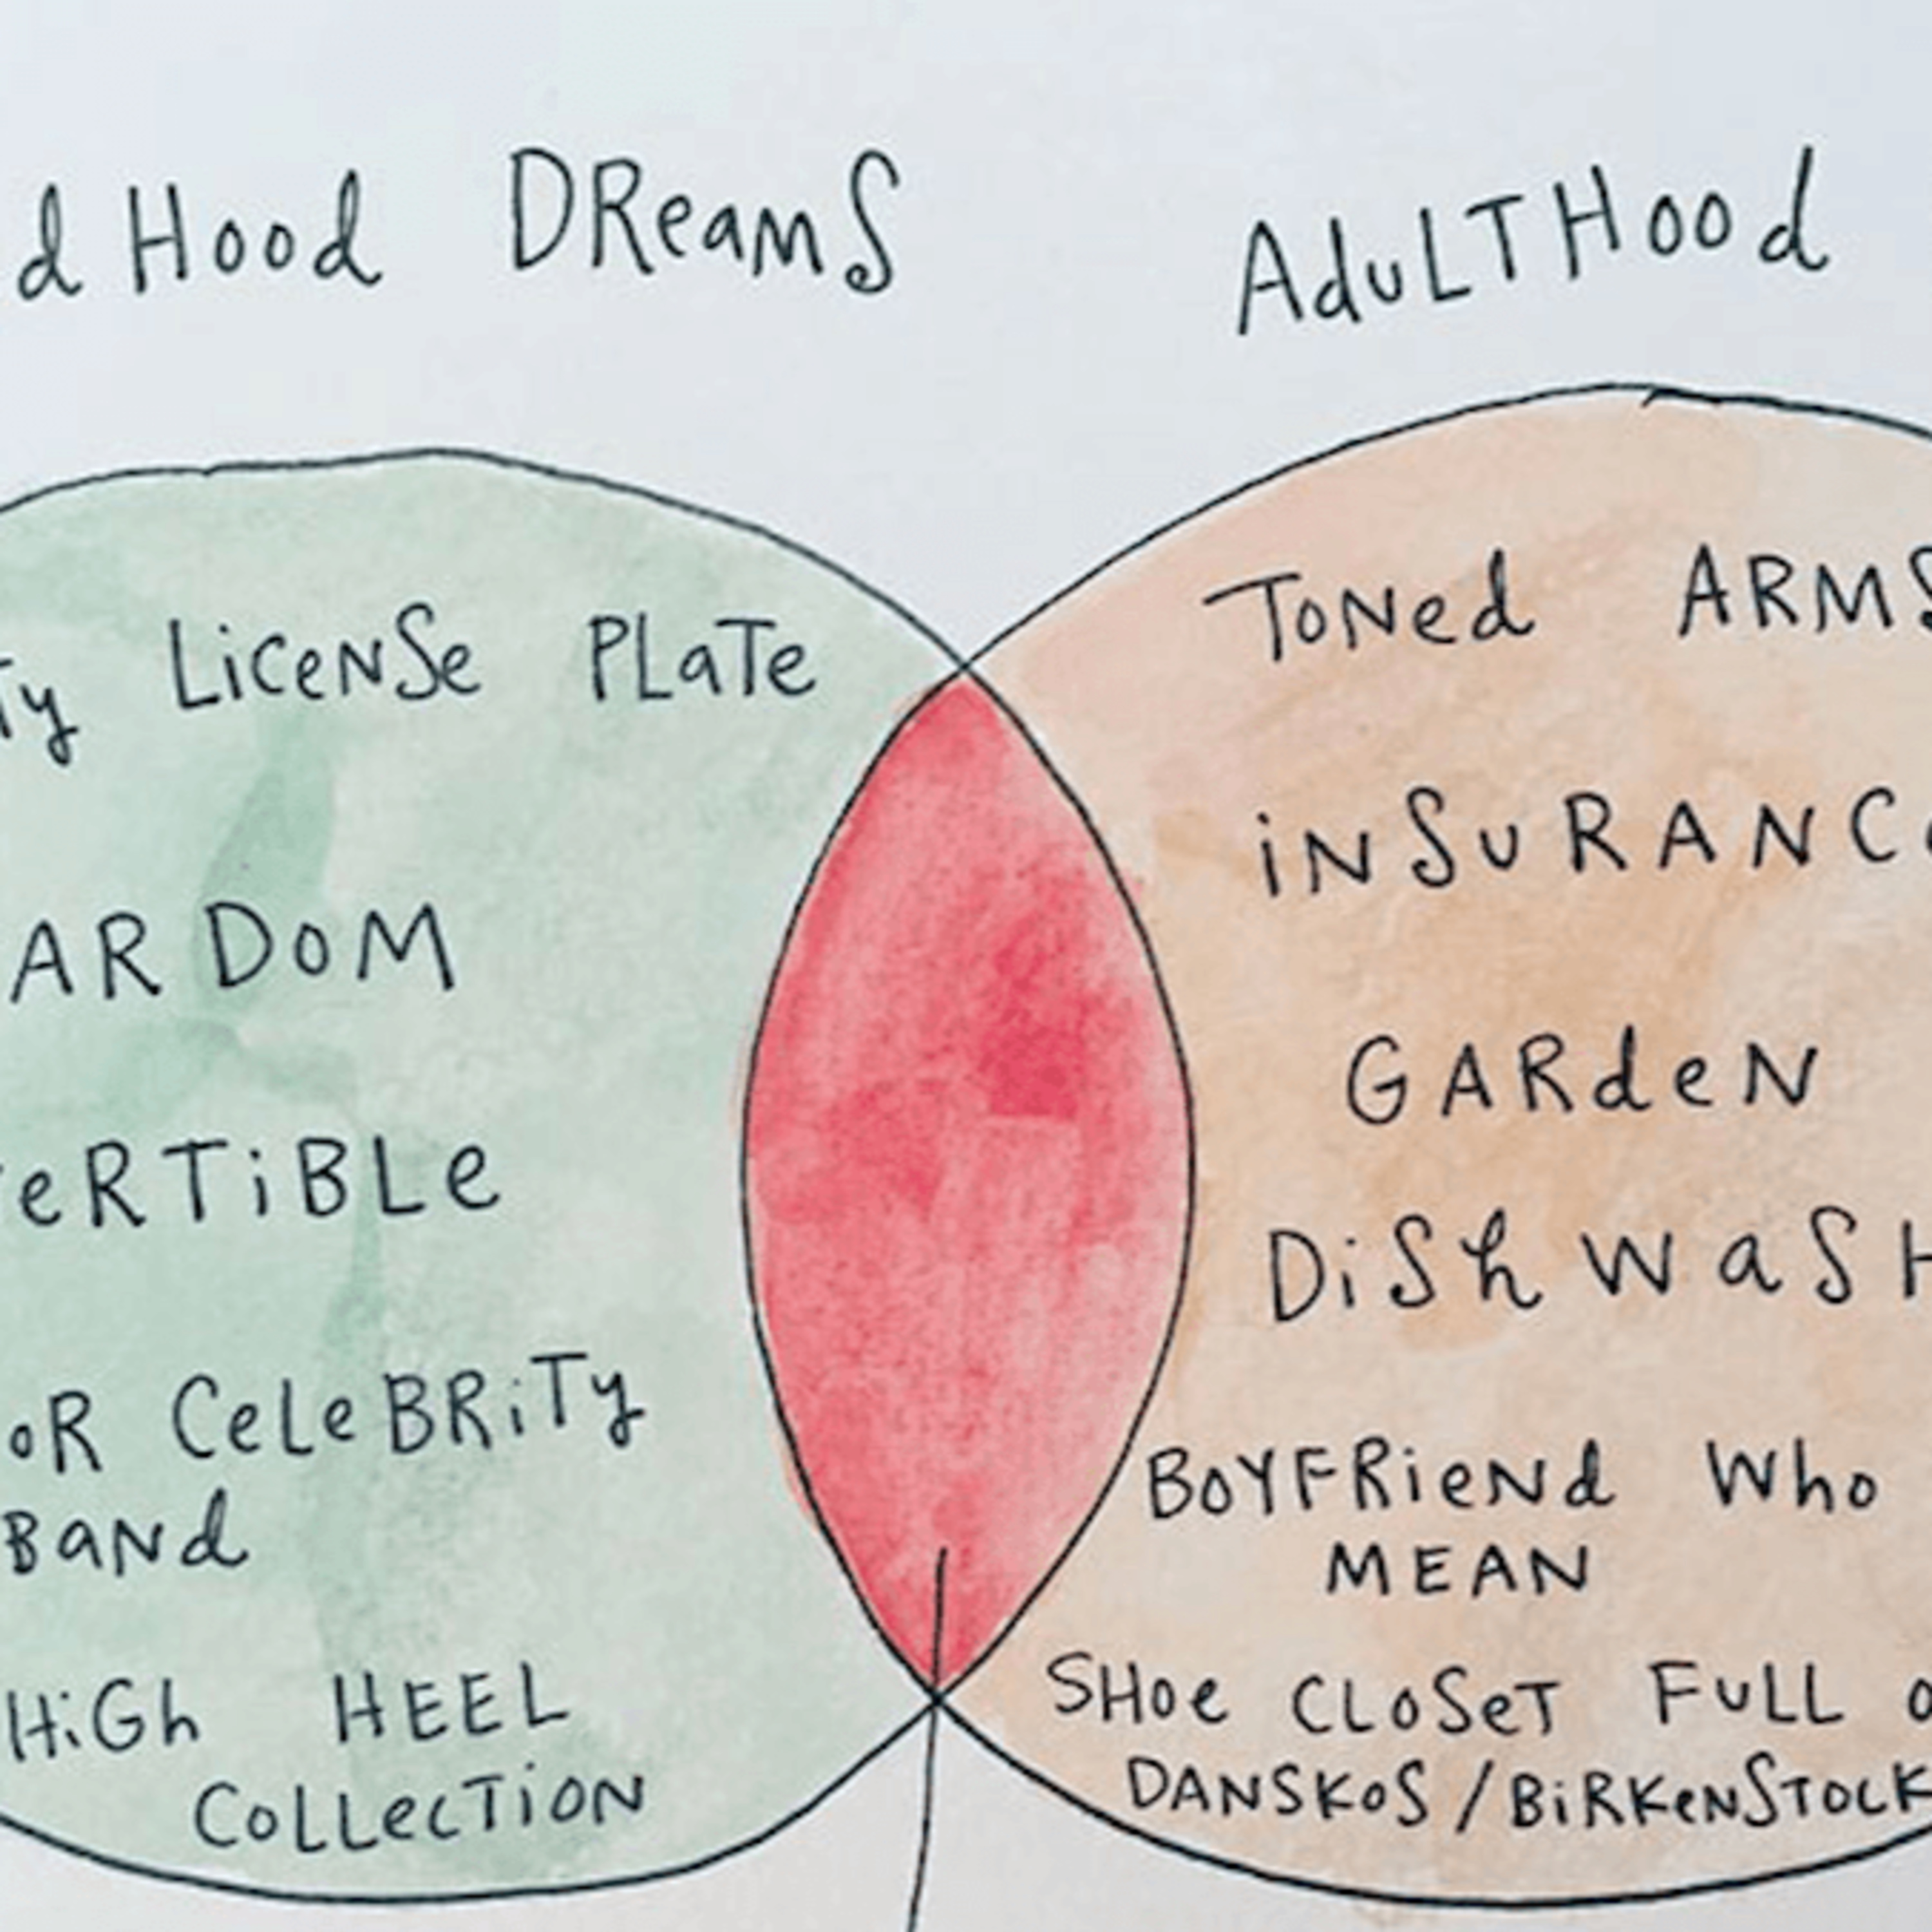 dHood DReamS
AduLTHood
Ty LiceNSe PLaTe
ARDoM
eRTiBLe
oR CeLeBRiTy
BaNd
HiGh HEEL
CoLLecTioN
ToNed ARMS
iNSuRANCe
GARdeN
DiShwaSH
BoYFRieNd Who
MEAN
SHoe CLoSeT FuLL o
DANSKoS / BiRKeNSToCK